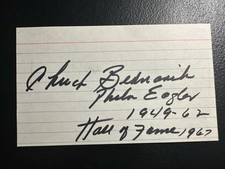 Chuck Bednarik
Phila Eagles
1949-62
Hall of Fame 1967